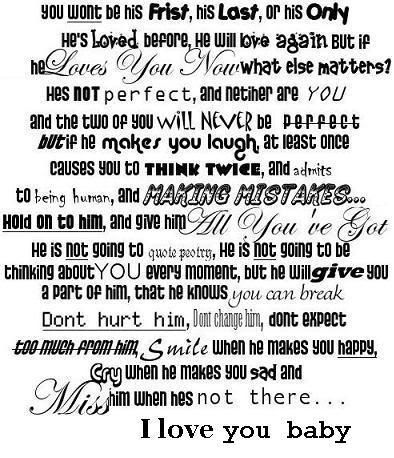 you wont be his Frist, his Last, or his Only
He's Loved before, He will love again But if
he Loves You Now what else matters?
Hes NOT perfect, and netiher are YOU
and the two of you WILL NEVER be perfect
but if he makes you laugh at least once
causes you to THINK TWICE, and admits
to being human, and MAKING MISTAKES...
Hold on to him, and give him All You've Got
He is not going to quote peotry, He is not going to be
thinking about YOU every moment, but he will give you
a part of him, that he knows you can break
Dont hurt him, Dont change him, dont expect
too much from him, Smile when he makes you happy,
Cry when he makes you sad and
Miss him when hes not there...
I love you baby